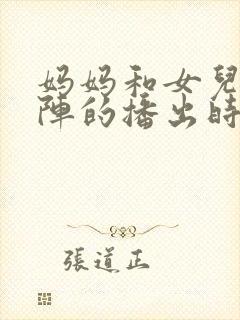 妈妈和女兒
陣的播出時
張道正